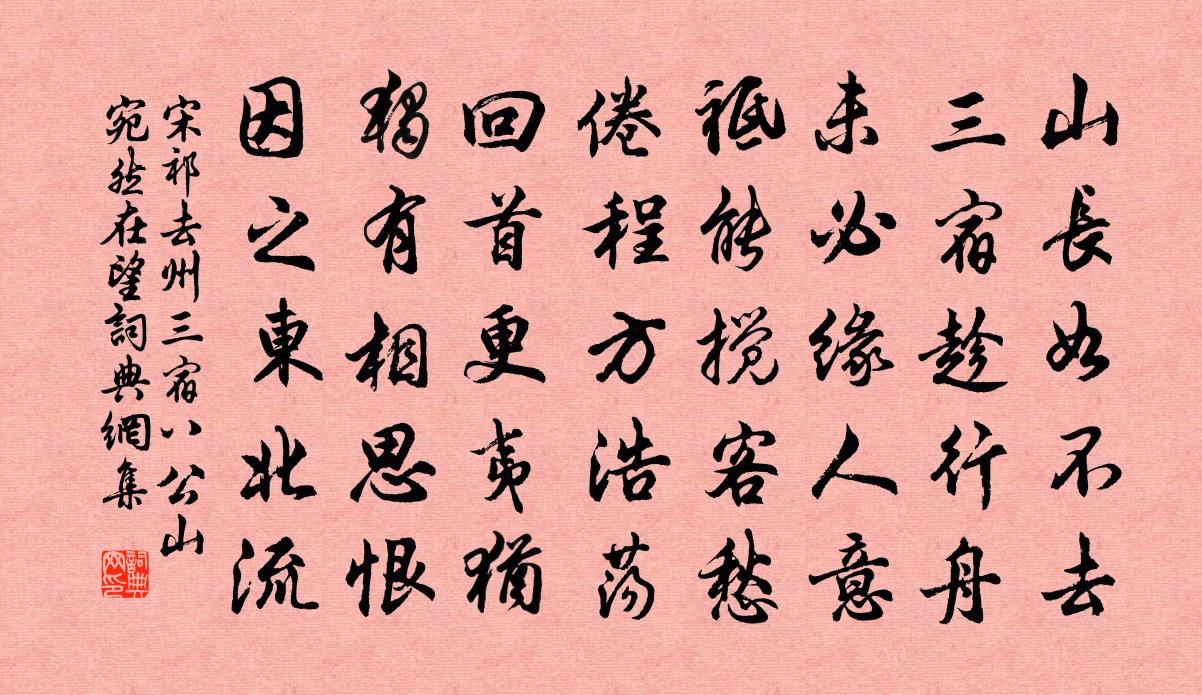 山長如不去
三宿趁行舟
未必緣人意
祗能攪客愁
倦程方浩蕩
回首更夷猶
獨有相思恨
因之東北流
宋祁去州三宿八公山
宛然在望詞典網集
詞典網印